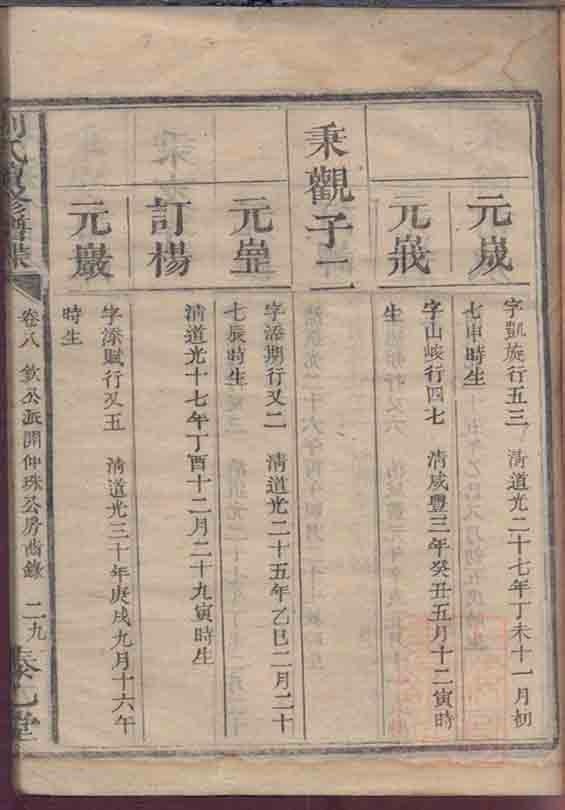 元晟
字凱旋行五三 清道光二十七年丁未十一月初
七申時生
元峩
字山峻行四七 清咸豐三年癸丑五月十二寅時
生
秉觀子二
元壘
字添期行又二 清道光二十五年乙巳二月二十
七辰時生
訂楊
清道光十七年丁酉十二月二十九寅時生
元巖
字添賦行又五 清道光三十年庚戌九月十六午
時生
卷八 欽公派開仲珠公房齒錄 二九